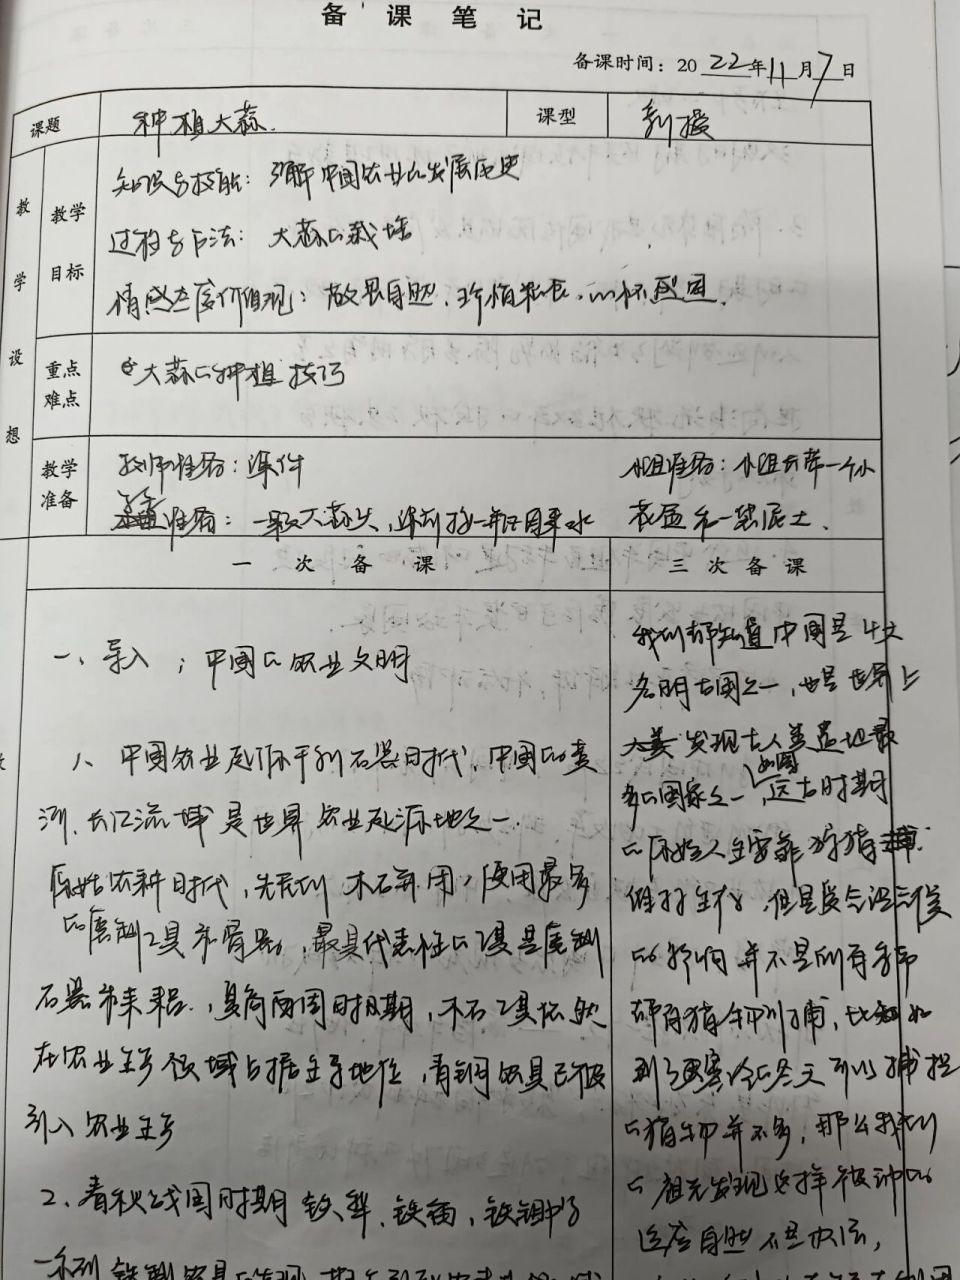 备课笔记
备课时间：2022年11月7日
课题 种植大蒜 课型 新授
教学设想
教学目标
知识与技能：了解中国农业的发展历史
过程与方法：大蒜的栽培
情感态度价值观：敬畏自然、珍惜
重点难点
大蒜的种植技巧
教学准备
教师准备：课件
小组准备：小组长带一个小
准备：一颗大蒜头，课前接一瓶自来水
花盆和一袋泥土．
一次备课
一、导入；中国的农业文明
1、中国农业起源于新石器时代，中国的黄
河、长江流域是世界农业起源地之一．
原始农耕时代，先民们木石并用，使用最多
的磨制工具和骨器，最具代表性的工具是磨制
石器和耒耜，夏商西周时期，木石工具依然
在农业生产领域占据主导地位，青铜农具已被
引入农业生产
2、春秋战国时期铁犁、铁锄，铁
一系列铁制农具的
三次备课
我们都知道中国是四大
名明古国之一，也是世界上
发现古人类遗址最
多的国家之一，远古时期
的原始人主要靠狩猎
维持生存，但是受气温气候
的影响并不是所有季节
都有猎物捕，比如
到了寒冷的冬天可以捕捉
的猎物并不多，那么我们
的祖先发现这样被动的
适应自然不是办法，